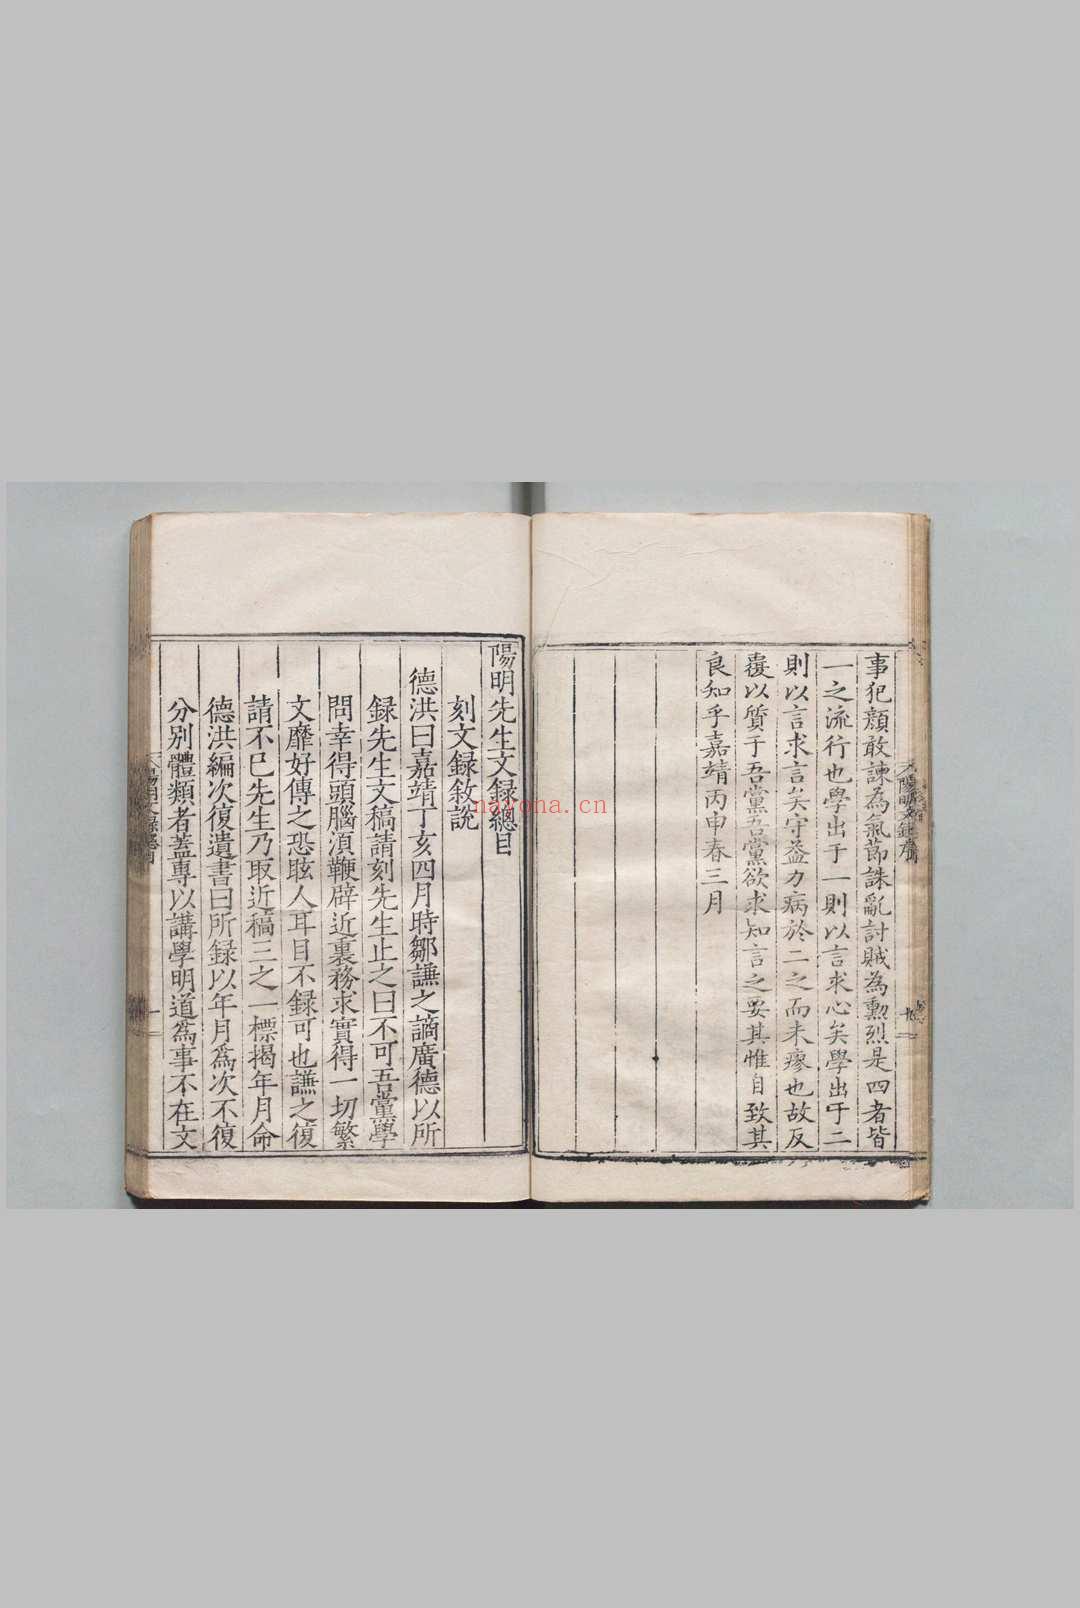 事犯顏敢諫為氣節誅亂討賊為勳烈是四者皆
一之流行也學出于一則以言求心矣學出于二
則以言求言矣守益力病於二之而未瘳也故反
覆以質于吾黨吾黨欲求知言之要其惟自致其
良知乎嘉靖丙申春三月
陽明先生文録總目
刻文録敘說
德洪曰嘉靖丁亥四月時鄒謙之謫廣德以所
録先生文稿請刻先生止之曰不可吾黨學
問幸得頭腦須鞭辟近裏務求實得一切繁
文靡好傳之恐眩人耳目不録可也謙之復
請不已先生乃取近稿三之一標揭年月命
德洪編次復遺書曰所録以年月為次不復
分别體類者蓋專以講學明道為事不在文
nayona.cn